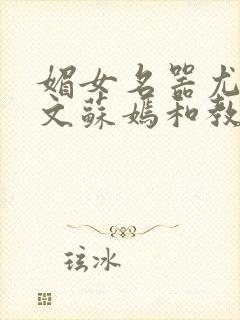 媚女名器尤
文蘇媽和教
玹冰